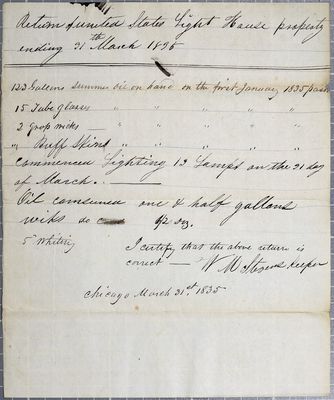 Return of United States Light House property
ending 31th March 1835
123 Gallons summer oil on hand on the first January 1835 past
15 Tube glasses " " " " "
2 Grop wicks " " " " "
" Buff Skins " "
Commenced Lighting 13 Lamps on the 21 day
of March.
Oil comsumed one & half gallons
wiks do 1/2 doz.
5 Whiting
I certify that the above return is
correct — W M Stevens Keeper
Chicago March 31st 1835